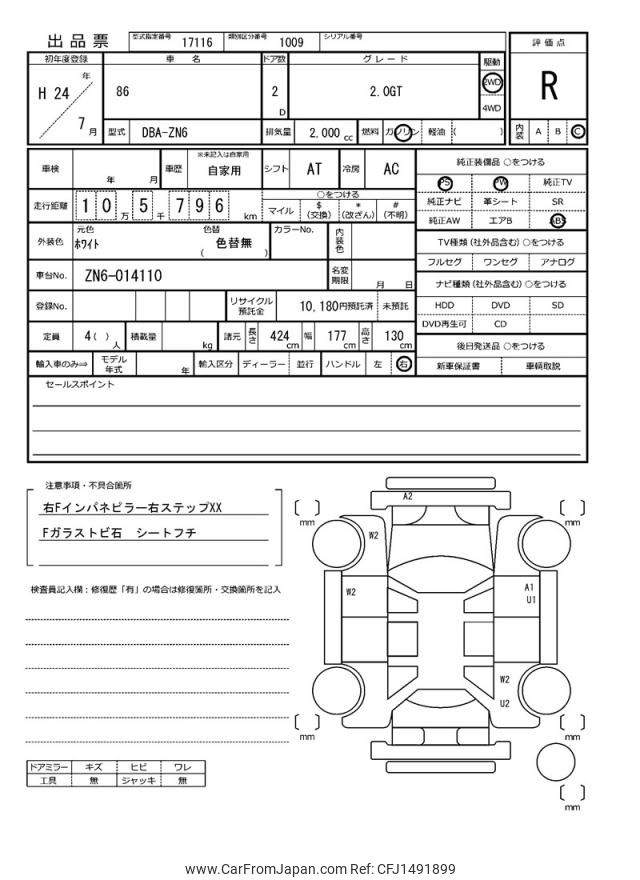 出品票 型式指定番号 17116 類別区分番号 1009 シリアル番号
初年度登録 車名 ドア数 グレード 駆動 評価点
H 24 年 7 月 86 2 D 2.0GT 2WD 4WD R
型式 DBA-ZN6 排気量 2,000 cc 燃料 ガソリン 軽油 ( ) 内装 A B C
車検 年 月 車歴 ※未記入は自家用 自家用 シフト AT 冷房 AC
走行距離 10万5千796 km ○をつける マイル $(交換) *(改ざん) #(不明)
外装色 元色 ホワイト 色替 色替無 ( ) カラーNo. 内装色
車台No. ZN6-014110 名変期限 月 日
登録No. リサイクル預託金 10,180円預託済 未預託
定員 4( )人 積載量 kg 諸元 長さ 424 cm 幅 177 cm 高さ 130 cm
輸入車のみ⇒ モデル年式 年 輸入区分 ディーラー 並行 ハンドル 左 右
純正装備品 ○をつける
PS PW 純正TV
純正ナビ 革シート SR
純正AW エアB ABS
TV種類(社外品含む)○をつける
フルセグ ワンセグ アナログ
ナビ種類(社外品含む)○をつける
HDD DVD SD
DVD再生可 CD
後日発送品 ○をつける
新車保証書 車輌取説
セールスポイント
注意事項・不具合箇所
右Fインパネピラー右ステップXX
Fガラストビ石 シートフチ
検査員記入欄:修復歴「有」の場合は修復箇所・交換箇所を記入
A2
[ ] mm [ ] mm
W2
W2 A1
U1
W2
U2
[ ] mm [ ] mm
[ ] mm
ドアミラー キズ ヒビ ワレ
工具 無 ジャッキ 無
www.CarFromJapan.com Ref: CFJ1491899